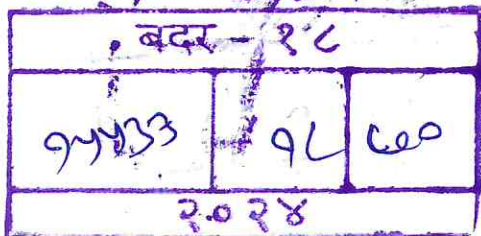 बदर - १८
१५५३३ १८ ८०
२०२४